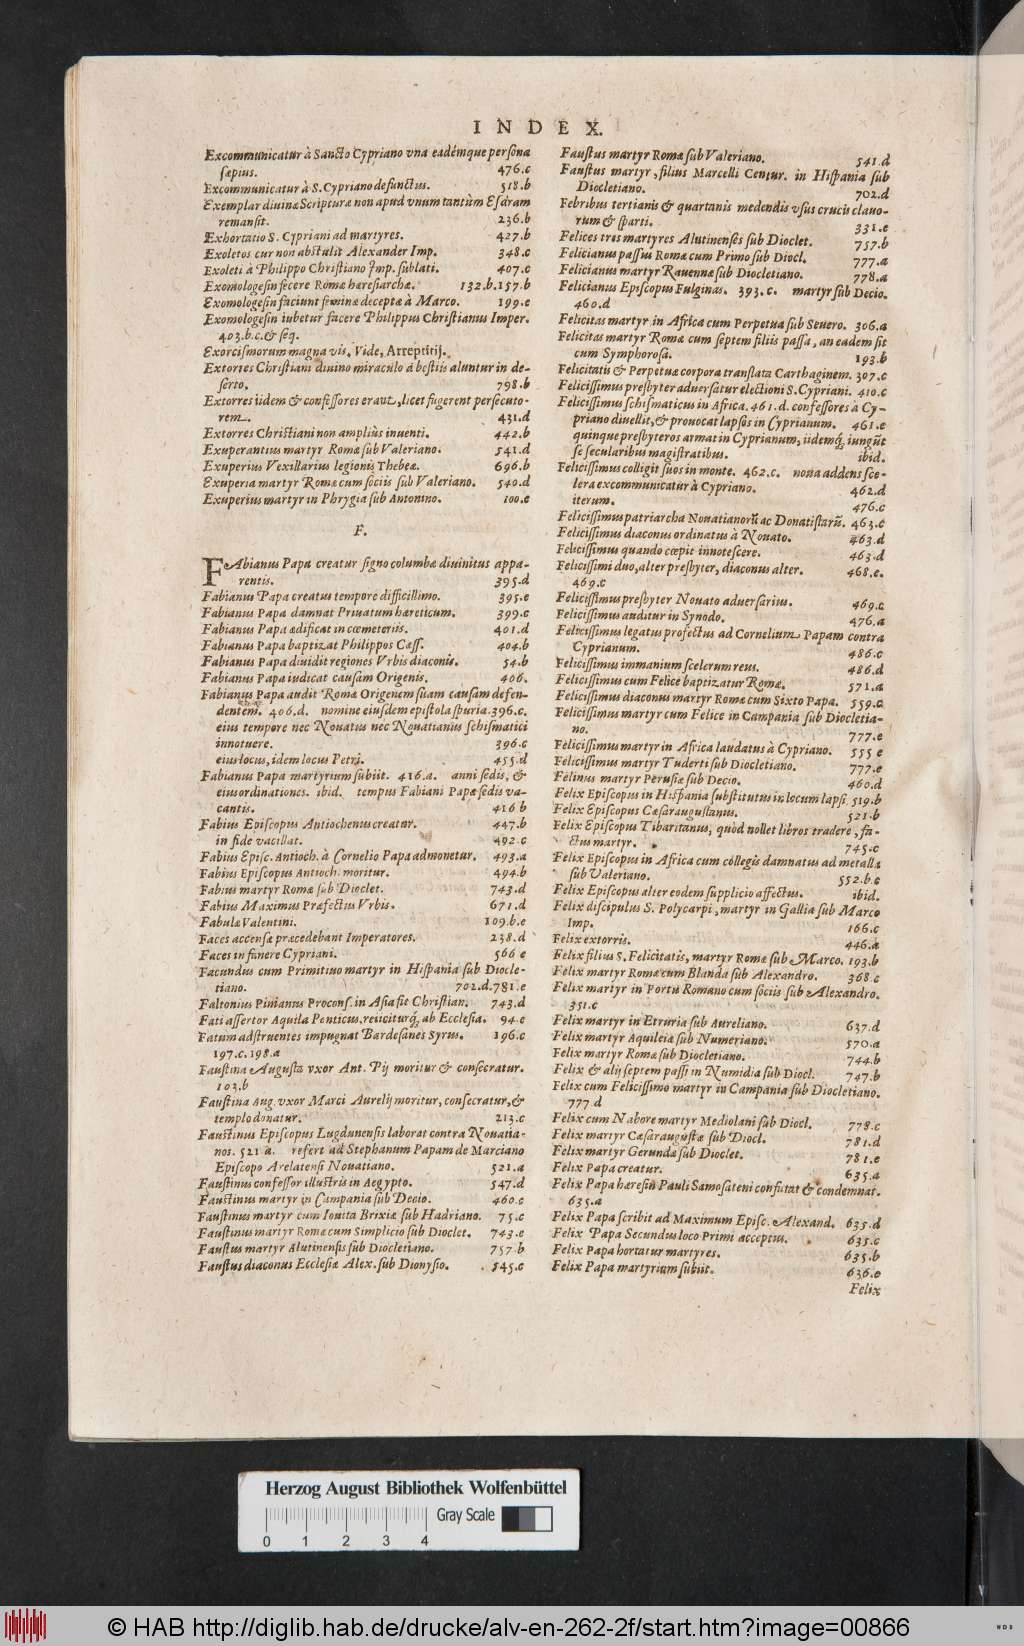 INDEX.
Excommunicatur à Sancto Cypriano vna eadémque persona
sæpius. 476.c
Excommunicatur à S. Cypriano defunctus. 518.b
Exemplar diuinæ Scripturæ non apud vnum tantùm Esdram
remansit. 236.b
Exhortatio S. Cypriani ad martyres. 427.b
Exoletos cur non abstulit Alexander Imp. 348.c
Exoleti à Philippo Christiano Imp. sublati. 407.c
Exomologesin fecere Romæ hæresiarchæ. 132.b.157.b
Exomologesin faciunt feminæ deceptæ à Marco. 199.e
Exomologesin iubetur facere Philippus Christianus Imper.
403.b.c.& seq.
Exorcismorum magna vis. Vide, Arreptitij.
Extorres Christiani diuino miraculo à bestiis aluntur in de-
serto. 798.b
Extorres iidem & confessores erant, licet fugerent persecuto-
rem. 431.d
Extorres Christiani non ampliùs inuenti. 442.b
Exuperantius martyr Romæ sub Valeriano. 541.d
Exuperius Vexillarius legionis Thebeæ. 696.b
Exuperia martyr Romæ cum sociis sub Valeriano. 540.d
Exuperius martyr in Phrygia sub Antonino. 100.e
F.
FAbianus Papa creatur signo columbæ diuinitus appa-
rentis. 395.d
Fabianus Papa creatus tempore difficillimo. 395.e
Fabianus Papa damnat Priuatum hæreticum. 399.c
Fabianus Papa ædificat in cœmeteriis. 401.d
Fabianus Papa baptizat Philippos Cæss. 404.b
Fabianus Papa diuidit regiones Vrbis diaconis. 54.b
Fabianus Papa iudicat causam Origenis. 406.
Fabianus Papa audit Romæ Origenem suam causam defen-
dentem. 406.d. nomine eiusdem epistola spuria. 396.c.
eius tempore nec Nouatus nec Nouatianus schismatici
innotuere. 396.c
eius locus, idem locus Petri. 455.d
Fabianus Papa martyrium subiit. 416.a. anni sedis, &
eius ordinationes. ibid. tempus Fabiani Papæ sedis va-
cantis. 416 b
Fabius Episcopus Antiochenus creatur. 447.b
in fide vacillat. 492.c
Fabius Episc. Antioch. à Cornelio Papa admonetur. 493.a
Fabius Episcopus Antioch. moritur. 494.b
Fabius martyr Romæ sub Dioclet. 743.d
Fabius Maximus Præfectus Vrbis. 671.d
Fabula Valentini. 109.b.e
Faces accensæ præcedebant Imperatores. 238.d
Faces in funere Cypriani. 566 e
Facundus cum Primitiuo martyr in Hispania sub Diocle-
tiano. 702.d.781.e
Faltonius Pinianus Procons. in Asia fit Christian. 743.d
Fati assertor Aquila Ponticus, reiiciturq; ab Ecclesia. 94 e
Fatum adstruentes impugnat Bardesanes Syrus. 196.c
197.c.198.a
Faustina Augusta vxor Ant. Pij moritur & consecratur.
103.b
Faustina Aug. vxor Marci Aurelij moritur, consecratur, &
templo donatur. 213.c
Faustinus Episcopus Lugdunensis laborat contra Nouatia-
nos. 521 a. refert ad Stephanum Papam de Marciano
Episcopo Arelatensi Nouatiano. 521.a
Faustinus confessor illustris in Aegypto. 547.d
Faustinus martyr in Campania sub Decio. 460.c
Faustinus martyr cum Iouita Brixiæ sub Hadriano. 75.c
Faustinus martyr Romæ cum Simplicio sub Dioclet. 743.e
Faustus martyr Alutinensis sub Diocletiano. 757.b
Faustus diaconus Ecclesiæ Alex. sub Dionysio. 545.c
Faustus martyr Romæ sub Valeriano. 541.d
Faustus martyr, filius Marcelli Centur. in Hispania sub
Diocletiano. 702.d
Febribus tertianis & quartanis medendis vsus crucis clauo-
rum & sparti. 331.e
Felices tres martyres Alutinenses sub Dioclet. 757.b
Felicianus passus Romæ cum Primo sub Diocl. 777.a
Felicianus martyr Rauennæ sub Diocletiano. 778.a
Felicianus Episcopus Fulginas. 393.c. martyr sub Decio.
460.d
Felicitas martyr in Africa cum Perpetua sub Seuero. 306.a
Felicitas martyr Romæ cum septem filiis passa, an eadem sit
cum Symphorosa. 193.b
Felicitatis & Perpetuæ corpora translata Carthaginem. 307.c
Felicissimus presbyter aduersatur electioni S. Cypriani. 410.c
Felicissimus schismaticus in Africa. 461.d. confessores à Cy-
priano diuellit, & prouocat lapsos in Cyprianum. 461.e
quinque presbyteros armat in Cyprianum, iidemq; iungūt
se secularibus magistratibus. ibid.
Felicissimus colligit suos in monte. 462.c. nona addens sce-
lera excommunicatur à Cypriano. 462.d
iterum. 476.c
Felicissimus patriarcha Nouatianorū ac Donatistarū. 463.c
Felicissimus diaconus ordinatus à Nouato. 463.d
Felicissimus quando cœpit innotescere. 463.d
Felicissimi duo, alter presbyter, diaconus alter. 468.e.
469.c
Felicissimus presbyter Nouato aduersarius. 469.c
Felicissimus auditur in Synodo. 476.a
Felicissimus legatus profectus ad Cornelium Papam contra
Cyprianum. 486.c
Felicissimus immanium scelerum reus. 486.d
Felicissimus cum Felice baptizatur Romæ. 571.a
Felicissimus diaconus martyr Romæ cum Sixto Papa. 559.c
Felicissimus martyr cum Felice in Campania sub Diocletia-
no. 777.e
Felicissimus martyr in Africa laudatus à Cypriano. 555 e
Felicissimus martyr Tuderti sub Diocletiano. 777.e
Felinus martyr Perusiæ sub Decio. 460.d
Felix Episcopus in Hispania substitutus in locum lapsi 519.b
Felix Episcopus Cæsaraugustanus. 521.b
Felix Episcopus Tibaritanus, quòd nollet libros tradere, fa-
ctus martyr. 745.c
Felix Episcopus in Africa cum collegis damnatus ad metalla
sub Valeriano. 552.b.c
Felix Episcopus alter eodem supplicio affectus. ibid.
Felix discipulus S. Polycarpi, martyr in Gallia sub Marco
Imp. 166.c
Felix extorris. 446.a
Felix filius S. Felicitatis, martyr Romæ sub Marco. 193.b
Felix martyr Romæ cum Blanda sub Alexandro. 368 c
Felix martyr in Portu Romano cum sociis sub Alexandro.
351.c
Felix martyr in Etruria sub Aureliano. 637.d
Felix martyr Aquileiæ sub Numeriano. 570.a
Felix martyr Romæ sub Diocletiano. 744.b
Felix & alij septem passi in Numidia sub Diocl. 747.b
Felix cum Felicissimo martyr in Campania sub Diocletiano.
777 d
Felix cum Nabore martyr Mediolani sub Diocl. 778.c
Felix martyr Cæsaraugustæ sub Diocl. 781.d
Felix martyr Gerundæ sub Dioclet. 781.e
Felix Papa creatur. 635.a
Felix Papa hæresin Pauli Samosateni confutat & condemnat.
635.a
Felix Papa scribit ad Maximum Episc. Alexand. 635.d
Felix Papa Secundus loco Primi acceptus. 635.c
Felix Papa hortatur martyres. 635.b
Felix Papa martyrium subiit. 636.e
Felix
Herzog August Bibliothek Wolfenbüttel
Gray Scale
0 1 2 3 4
© HAB http://diglib.hab.de/drucke/alv-en-262-2f/start.htm?image=00866